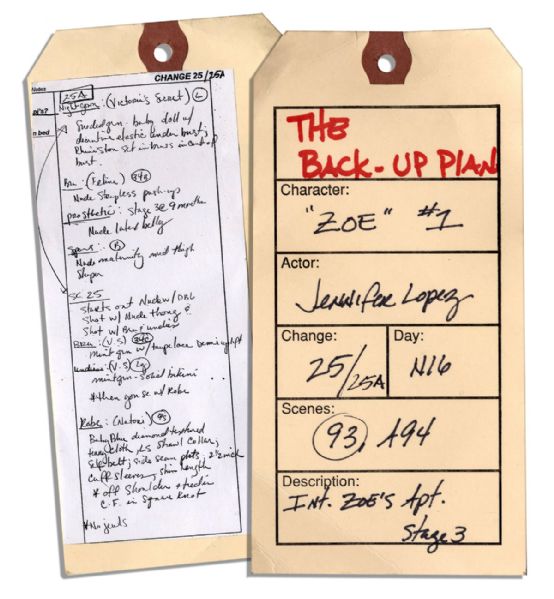 CHANGE 25/25A
Notes
25A
Nightgown: (Victoria's Secret) L
baby doll w/
elastic under bust;
Rhinestone set in bows in center of
bust.
Bra: (Felina) 34B
Nude Strapless push-up
prosthetic: Stage 3 @ 9 months
Nude latex belly
Spanx: B
Nude maternity mid thigh
Shaper
n bed
SC 25
Starts out Nude w/ DBL
Shot w/ Nude thong &
Shot w/ Bra & undies
Bra: (V.S) 34C
mint green w/ taupe lace Demi
Undies: (V.S) Lg
mint green - solid bikini
* then gon se w/ Robe
Robe: (Natori)
Baby Blue diamond textured
terry cloth, LS Shawl Collar;
self belt; side seam pkts; 2 1/2 inch
cuff sleeves, shin length
* off Shoulder +
C.F. in Square Knot
* No jewels
THE
BACK-UP PLAN
Character:
"ZOE" #1
Actor:
Jennifer Lopez
Change:
25/25A
Day:
N16
Scenes:
93, A94
Description:
Int. Zoe's Apt.
Stage 3